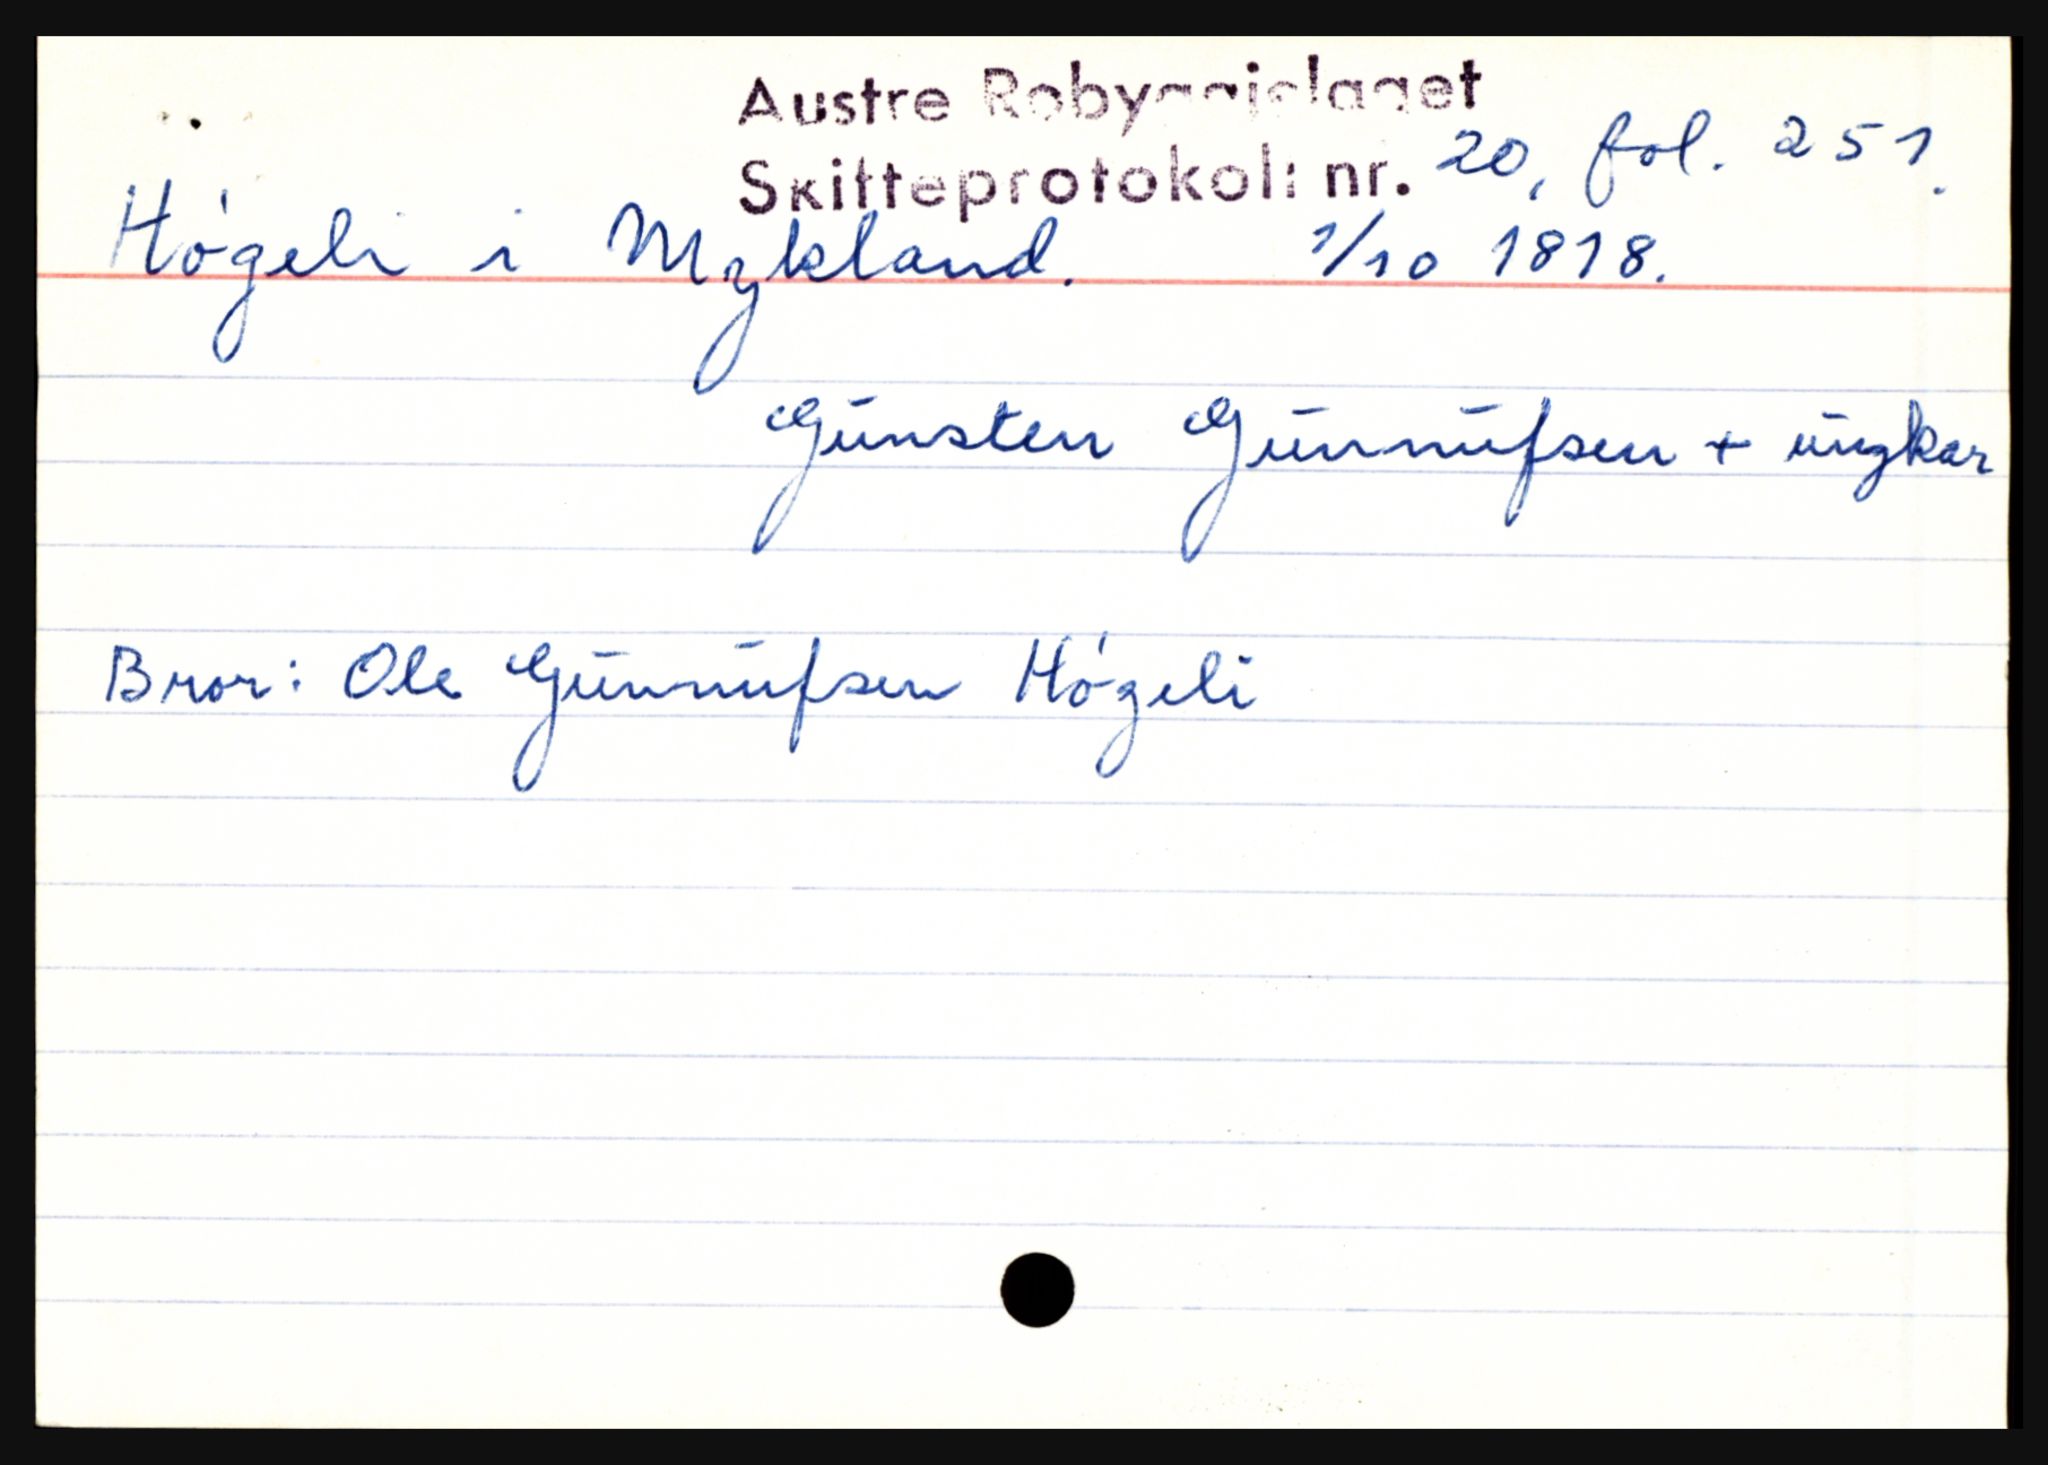 Austre Robyggjelaget
Skifteprotokoll nr. 20, fol. 251.
Högeli i Mykland. 1/10 1818.
Gunsten Gunnufsen + ungkar
Bror: Ole Gunnufsen Högeli